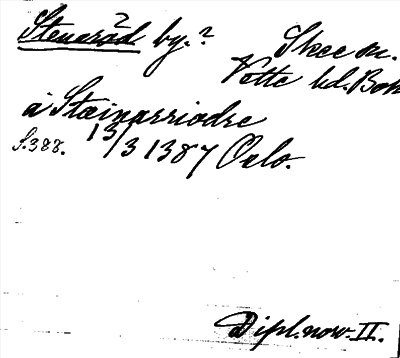 Stenaröd by.? Skee sn.
Vette hd. Boh
a Stæinarriodre
S.388. 13/3 1387 Oslo.
Dipl. norv. II.